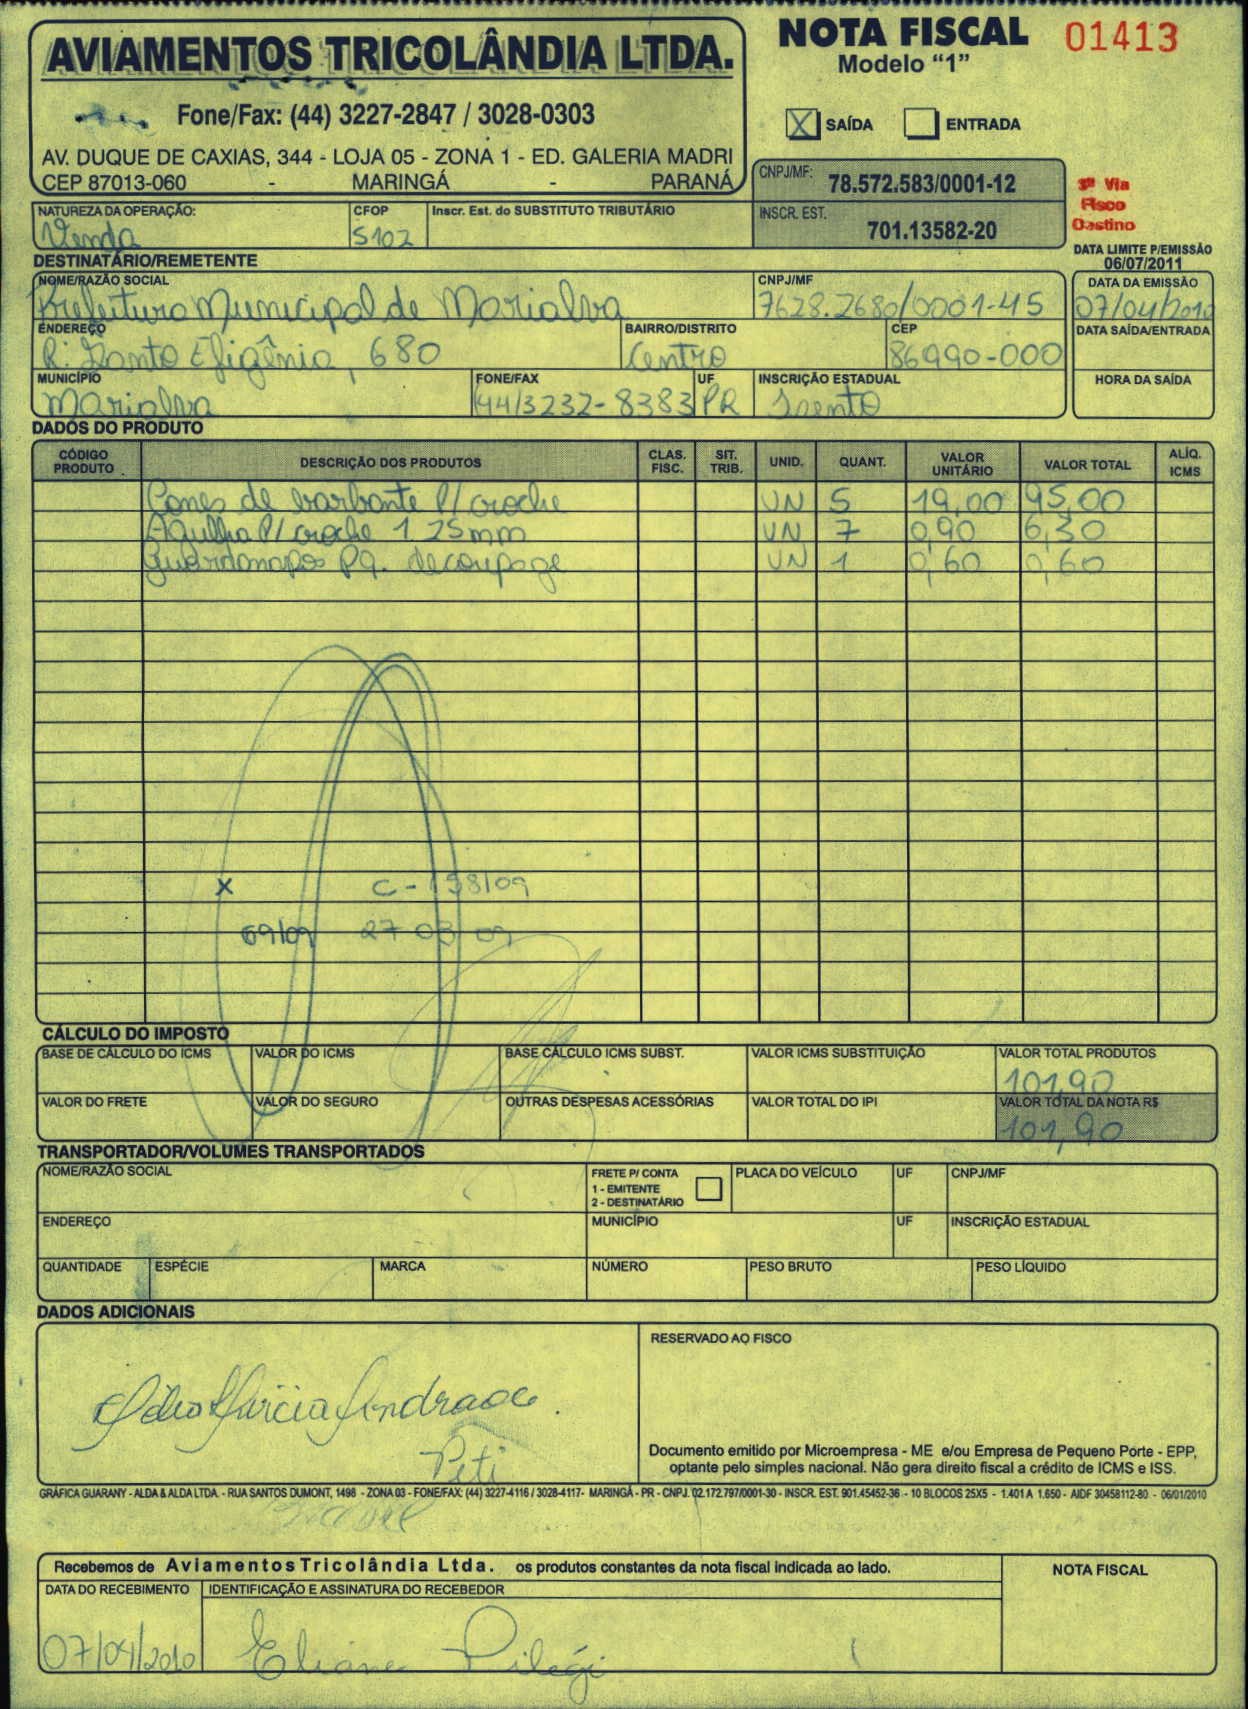 AVIAMENTOS TRICOLÂNDIA LTDA.
Fone/Fax: (44) 3227-2847 / 3028-0303
AV. DUQUE DE CAXIAS, 344 - LOJA 05 - ZONA 1 - ED. GALERIA MADRI
CEP 87013-060 - MARINGÁ - PARANÁ
NOTA FISCAL 01413
Modelo “1”
X SAÍDA ENTRADA
CNPJ/MF: 78.572.583/0001-12
INSCR. EST. 701.13582-20
3ª Via
Fisco
Destino
DATA LIMITE P/EMISSÃO
06/07/2011
NATUREZA DA OPERAÇÃO: CFOP Inscr. Est. do SUBSTITUTO TRIBUTÁRIO
Venda 5102
DESTINATÁRIO/REMETENTE
NOME/RAZÃO SOCIAL CNPJ/MF DATA DA EMISSÃO
Prefeitura Municipal de Marialva 7628.2680/0001-45 07/04/2010
ENDEREÇO BAIRRO/DISTRITO CEP DATA SAÍDA/ENTRADA
R: Santa Efigênia, 680 Centro 86990-000
MUNICÍPIO FONE/FAX UF INSCRIÇÃO ESTADUAL HORA DA SAÍDA
Marialva 44/3232-8383 PR Isento
DADOS DO PRODUTO
CÓDIGO PRODUTO DESCRIÇÃO DOS PRODUTOS CLAS. FISC. SIT. TRIB. UNID. QUANT. VALOR UNITÁRIO VALOR TOTAL ALÍQ. ICMS
Cones de barbante P/ croche UN 5 19,00 95,00
Agulha P/ croche 1.25mm UN 7 0,90 6,30
Guardanapos Pq. decoupage UN 1 0,60 0,60
X C-158/09
69/09 27 03 09
CÁLCULO DO IMPOSTO
BASE DE CÁLCULO DO ICMS VALOR DO ICMS BASE CÁLCULO ICMS SUBST. VALOR ICMS SUBSTITUIÇÃO VALOR TOTAL PRODUTOS
101,90
VALOR DO FRETE VALOR DO SEGURO OUTRAS DESPESAS ACESSÓRIAS VALOR TOTAL DO IPI VALOR TOTAL DA NOTA R$
101,90
TRANSPORTADOR/VOLUMES TRANSPORTADOS
NOME/RAZÃO SOCIAL FRETE P/ CONTA 1 - EMITENTE 2 - DESTINATÁRIO PLACA DO VEÍCULO UF CNPJ/MF
ENDEREÇO MUNICÍPIO UF INSCRIÇÃO ESTADUAL
QUANTIDADE ESPÉCIE MARCA NÚMERO PESO BRUTO PESO LÍQUIDO
DADOS ADICIONAIS
RESERVADO AO FISCO
Andrade
Peti
Documento emitido por Microempresa - ME e/ou Empresa de Pequeno Porte - EPP,
optante pelo simples nacional. Não gera direito fiscal a crédito de ICMS e ISS.
GRÁFICA GUARANY - ALDA & ALDA LTDA. - RUA SANTOS DUMONT, 1498 - ZONA 03 - FONE/FAX: (44) 3227-4116 / 3028-4117- MARINGÁ - PR - CNPJ. 02.172.797/0001-30 - INSCR. EST. 901.45452-36 - 10 BLOCOS 25X5 - 1.401 A 1.650 - AIDF 30458112-80 - 06/01/2010
Recebemos de Aviamentos Tricolândia Ltda. os produtos constantes da nota fiscal indicada ao lado. NOTA FISCAL
DATA DO RECEBIMENTO IDENTIFICAÇÃO E ASSINATURA DO RECEBEDOR
07/04/2010 Eliane Pilegi